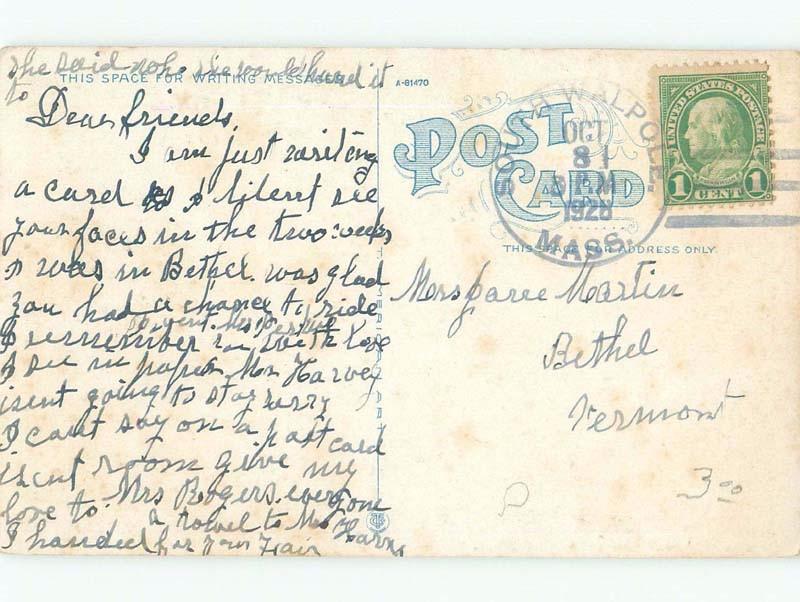 she said no she would hand it
to
THIS SPACE FOR WRITING MESSAGES
A-81470
Dear friends,
I am just writing
a card as I didnt see
your faces in the two weeks
I was in Bethel. was glad
you had a chance to ride
I remember you with love
I see in paper Mrs Harvey
isent going to stay
I cant say on a post card
isent room give my
love to Mrs Rogers. everyone
a towel to Mrs
I handed for your
POST
CARD
SOUTH WALPOLE.
OCT
1928
MASS.
UNITED STATES POSTAGE
FRANKLIN
1 CENT 1
THIS SPACE FOR ADDRESS ONLY.
Mrs Martin
Bethel
Vermont
3.00